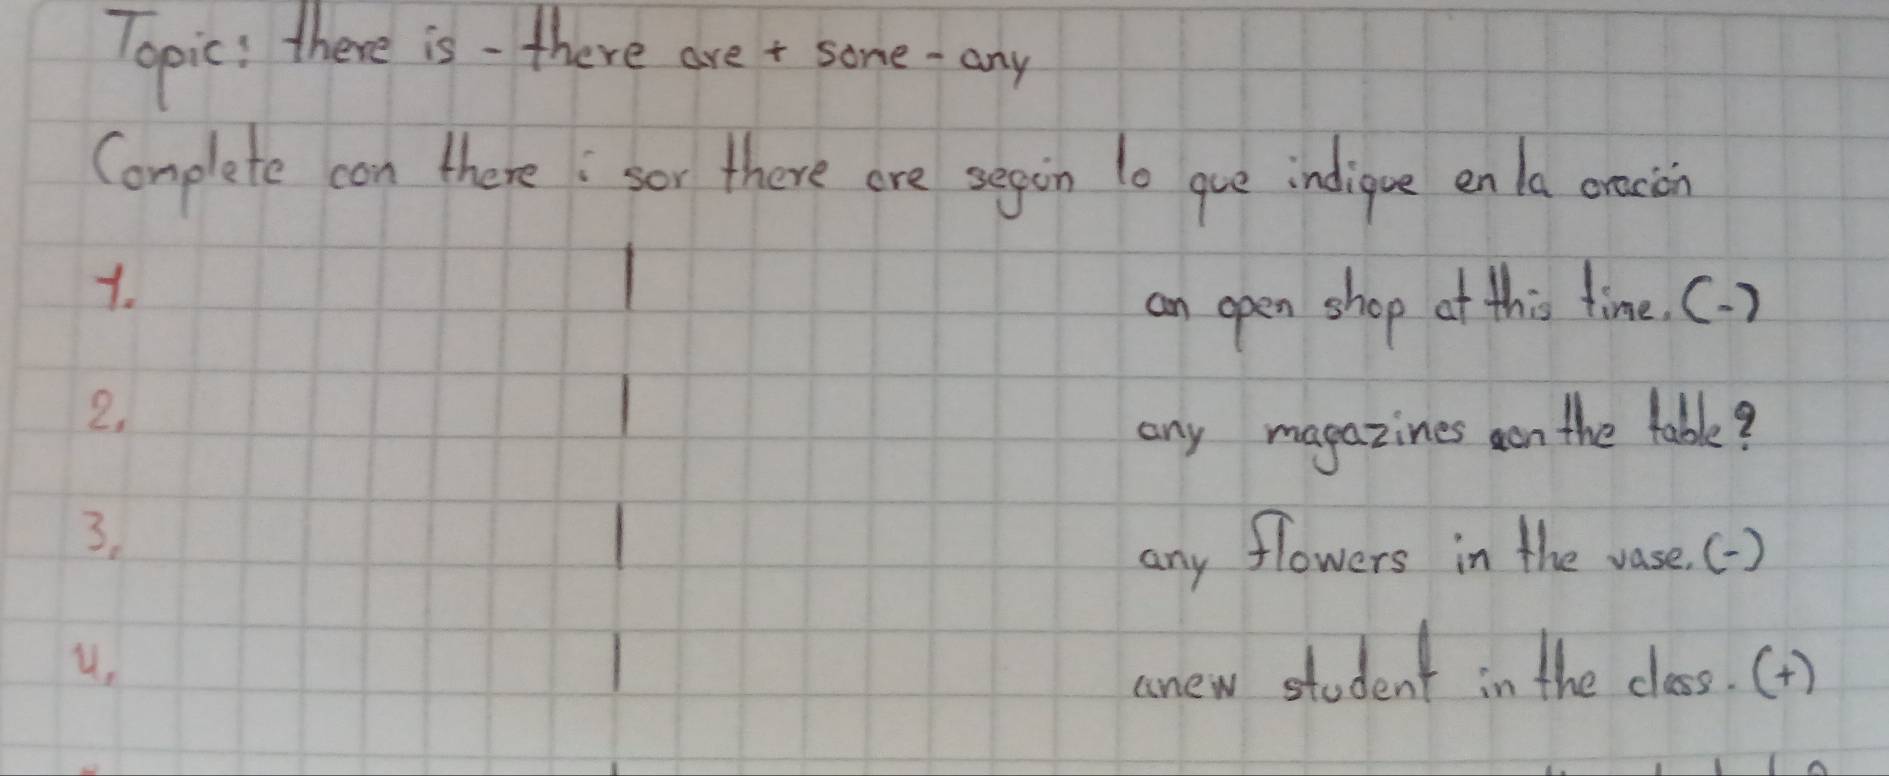 Topic: there is - there are + some - any
Complete con there i sor there are según lo que indique en la oración
1. | an open shop at this time. (-)
2. | any magazines on the table?
3. | any flowers in the vase. (-)
4. | anew student in the class. (+)